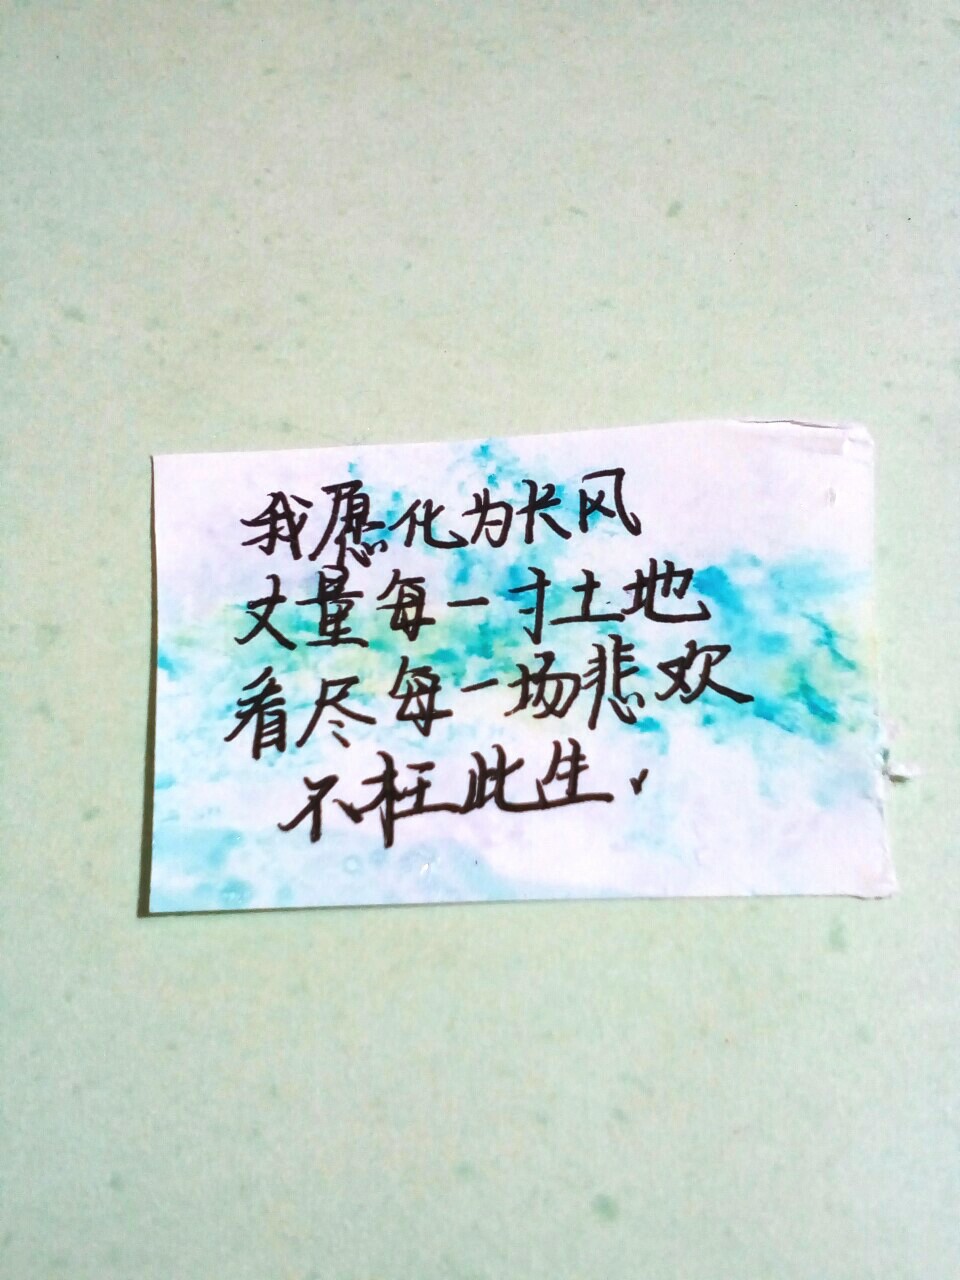 我愿化为长风
丈量每一寸土地
看尽每一场悲欢
不枉此生.